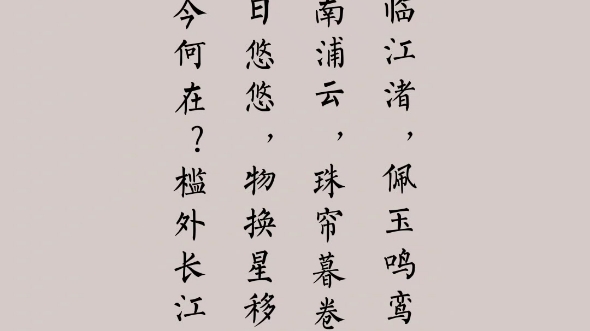 临江渚，佩玉鸣鸾
南浦云，珠帘暮卷
日悠悠，物换星移
今何在？槛外长江